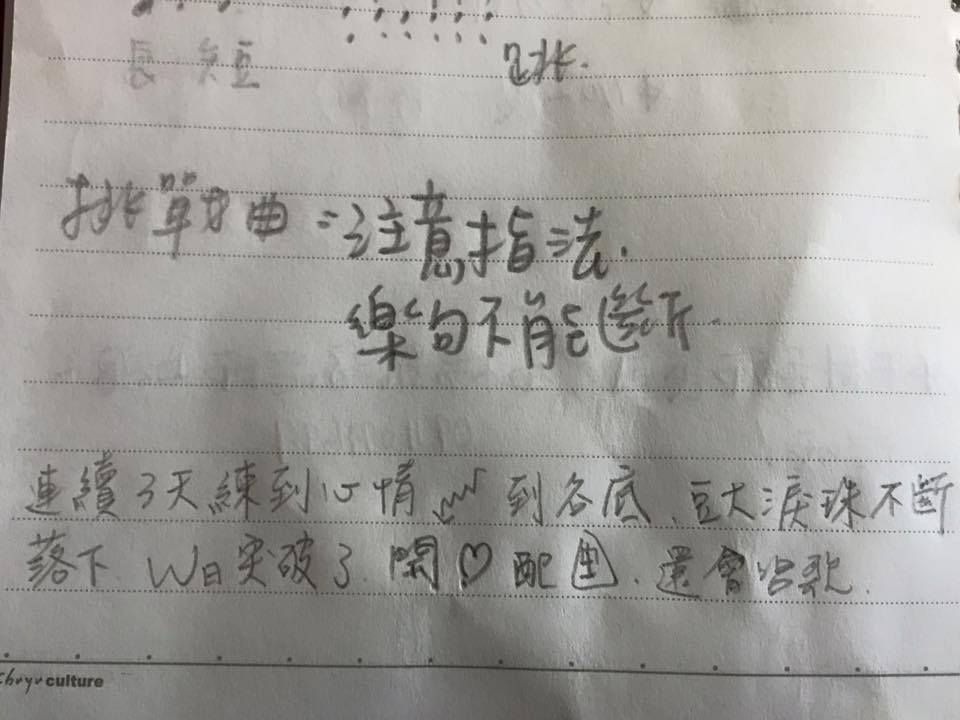 長 短 跳.
挑戰曲:注意指法.
樂句不能斷.
連續3天練到心情 到谷底、豆大淚珠不斷
落下. W日突破了.開♡配 、還會唱歌.
culture